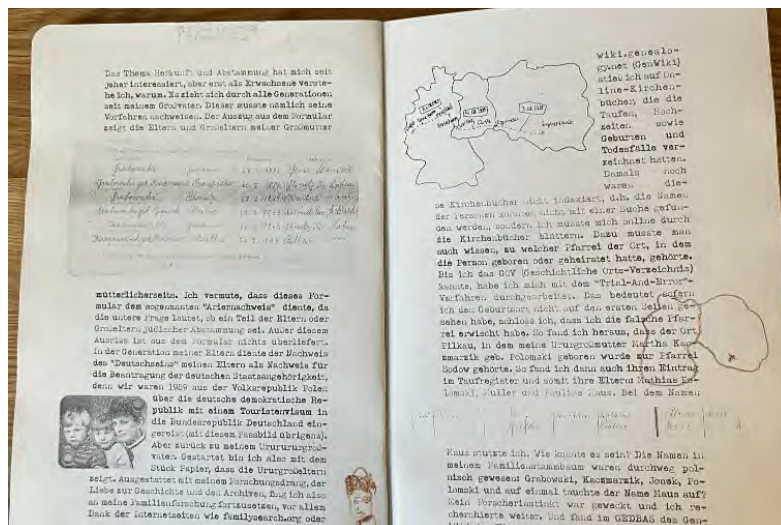 Das Thema Herkunft und Abstammung hat mich seit
jeher interessiert, aber erst als Erwachsene verste-
he ich, warum. Es zieht sich durch alle Generationen
seit meinem Großvater. Dieser musste nämlich seine
Vorfahren nachweisen. Der Auszug aus dem Formular
zeigt die Eltern und Großeltern meiner Großmutter
mütterlicherseits. Ich vermute, dass dieses For-
mular dem sogenannten "Ariernachweis" diente, da
die untere Frage lautet, ob ein Teil der Eltern oder
Großeltern jüdischer Abstammung sei. Außer diesem
Ausriss ist aus dem Formular nichts überliefert.
In der Generation meiner Eltern diente der Nachweis
des "Deutschseins" meinen Eltern als Nachweis für
die Beantragung der deutschen Staatsangehörigkeit,
denn wir waren 1989 aus der Volksrepublik Polen
über die deutsche demokratische Re-
publik mit einem Touristenvisum in
die Bundesrepublik Deutschland ein-
gereist (mit diesem Passbild übrigens).
Aber zurück zu meinem Urururgroß-
vater. Gestartet bin ich also mit dem
Stück Papier, dass die Ururgroßeltern
zeigt. Ausgestattet mit meinem Forschungsdrang, der
Liebe zur Geschichte und den Archiven, fing ich also
an meine Familienforschung fortzusetzen, vor allem
Dank der Internetseiten wie familysearch.org oder
wiki.genealo-
gy.net (GenWiki)
stieß ich auf On-
line-Kirchen-
bücher, die die
Taufen, Hoch-
zeiten sowie
Geburten und
Todesfälle ver-
zeichnet hatten.
Damals noch
waren die-
se Kirchenbücher nicht indexiert, d.h. die Namen
der Personen konnten nicht mit einer Suche gefun-
den werden, sondern ich musste mich online durch
die Kirchenbücher blättern. Dazu musste man
auch wissen, zu welcher Pfarrei der Ort, in dem
die Person geboren oder geheiratet hatte, gehörte.
Bis ich das GOV (Geschichtliche Orts-Verzeichnis)
kannte, habe ich mich mit dem "Trial-And-Error"-
Verfahren durchgearbeitet. Das bedeutet sofern
ich den Geburtsort nicht auf den ersten Seiten ge-
sehen habe, schloss ich, dass ich die falsche Pfar-
rei erwischt habe. So fand ich heraus, dass der Ort
Pilkau, in dem meine Ururgroßmutter Martha Kac-
zmarzik geb. Polomski geboren wurde zur Pfarrei
Sodow gehörte. So fand ich dann auch ihren Eintrag
im Taufregister und somit ihre Eltern Mathias Po-
lomski, Müller und Paulina Maus. Bei dem Namen
Maus stutzte ich. Wie konnte es sein? Die Namen in
meinem Familienstammbaum waren durchweg pol-
nisch gewesen: Grabowski, Kaczmarzik, Jonek, Po-
lomski und auf einmal tauchte der Name Maus auf?
Mein Forscherinstinkt war geweckt und ich re-
cherchierte weiter. Und fand im GEDBAS des Gen-